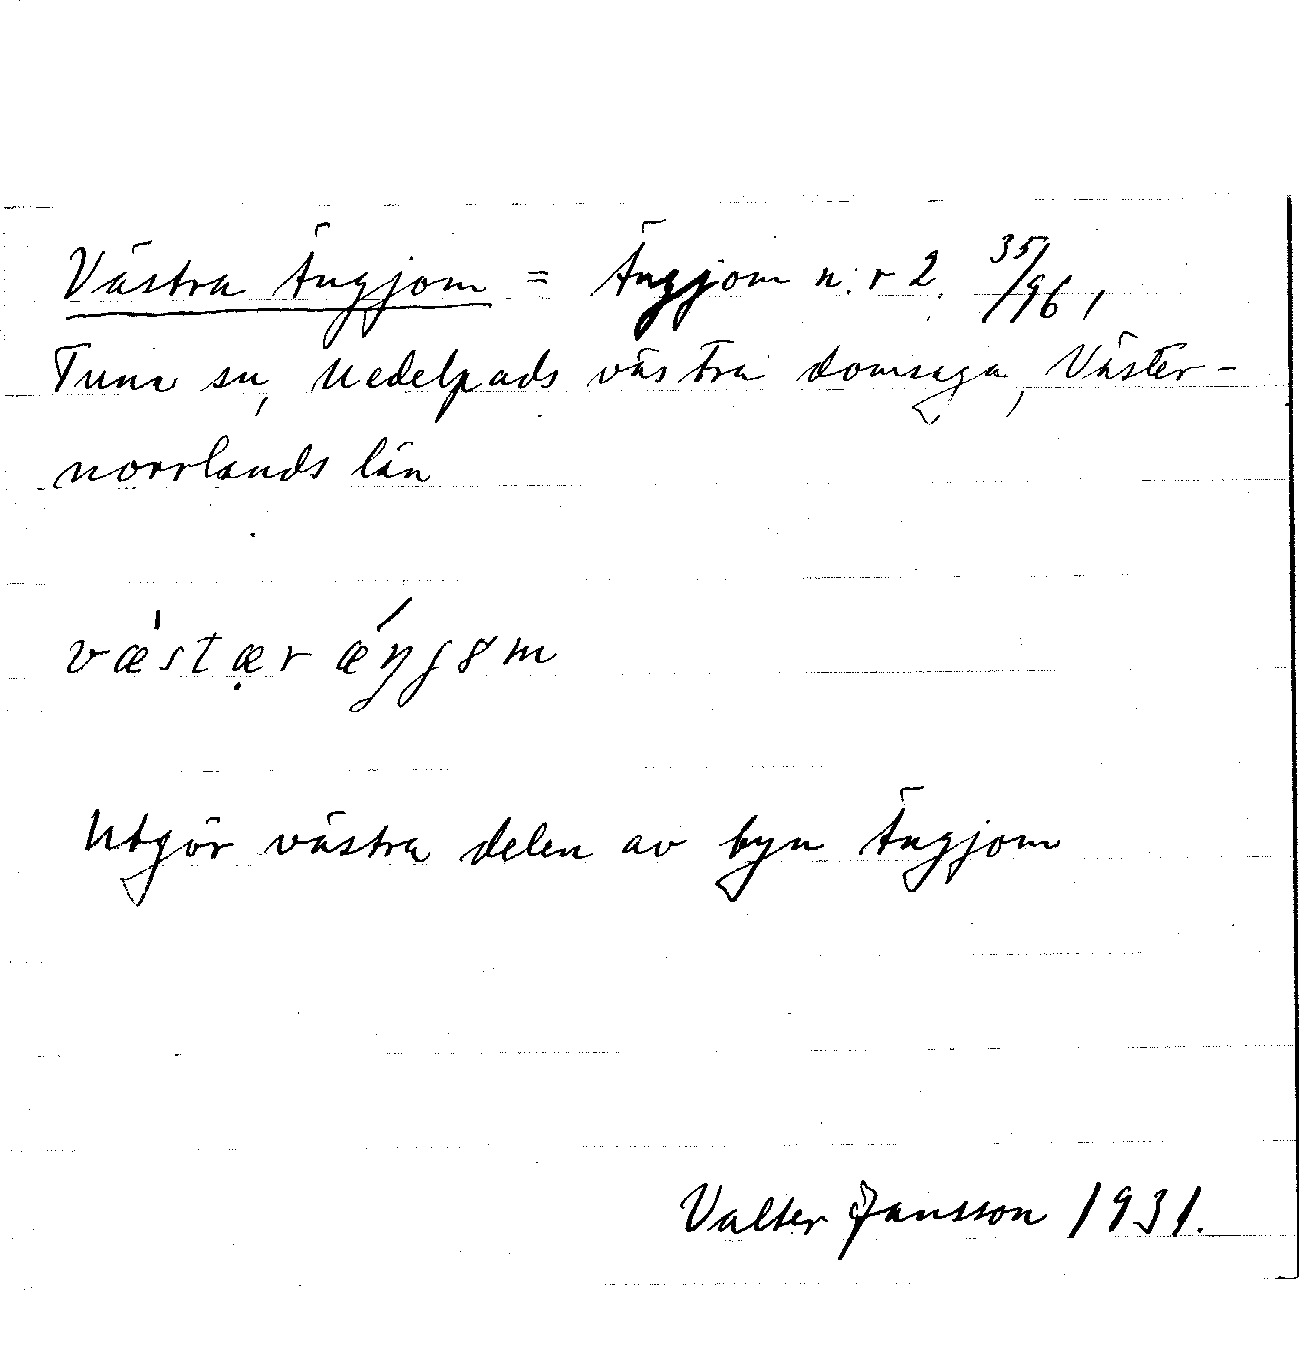 Västra Ängjom = Ängjom n:r 2, 35/96,
Tuna sn, Medelpads västra domsaga, Väster-
norrlands län
væ̍stæ̣r ǽŋjɞm
Utgör västra delen av byn Ängjom
Valter Jansson 1931.